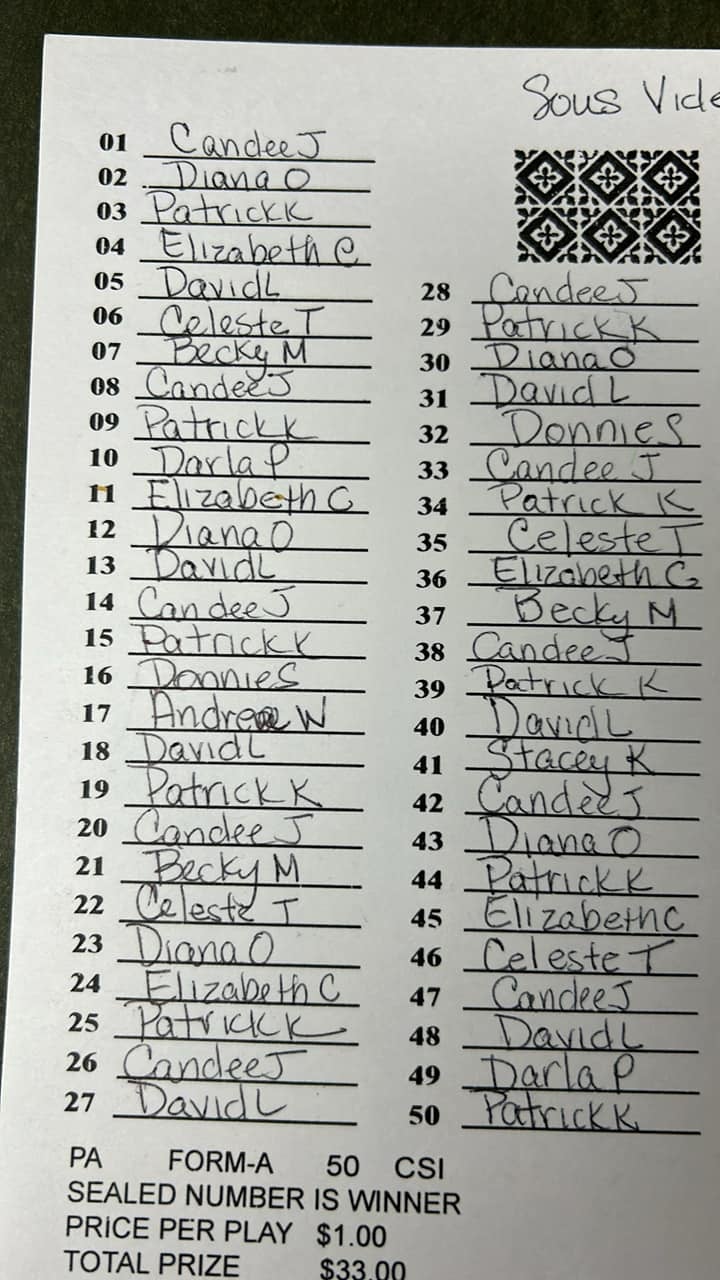 Sous Vide
01 Candee J
02 Diana O
03 Patrick K
04 Elizabeth C
05 David L
06 Celeste T
07 Becky M
08 Candee J
09 Patrick K
10 Darla P
11 Elizabeth C
12 Diana O
13 David L
14 Candee J
15 Patrick K
16 Donnie S
17 Andrew W
18 David L
19 Patrick K
20 Candee J
21 Becky M
22 Celeste T
23 Diana O
24 Elizabeth C
25 Patrick K
26 Candee J
27 David L
28 Candee J
29 Patrick K
30 Diana O
31 David L
32 Donnie S
33 Candee J
34 Patrick K
35 Celeste T
36 Elizabeth C
37 Becky M
38 Candee J
39 Patrick K
40 David L
41 Stacey K
42 Candee J
43 Diana O
44 Patrick K
45 Elizabeth C
46 Celeste T
47 Candee J
48 David L
49 Darla P
50 Patrick K
PA FORM-A 50 CSI
SEALED NUMBER IS WINNER
PRICE PER PLAY $1.00
TOTAL PRIZE $33.00